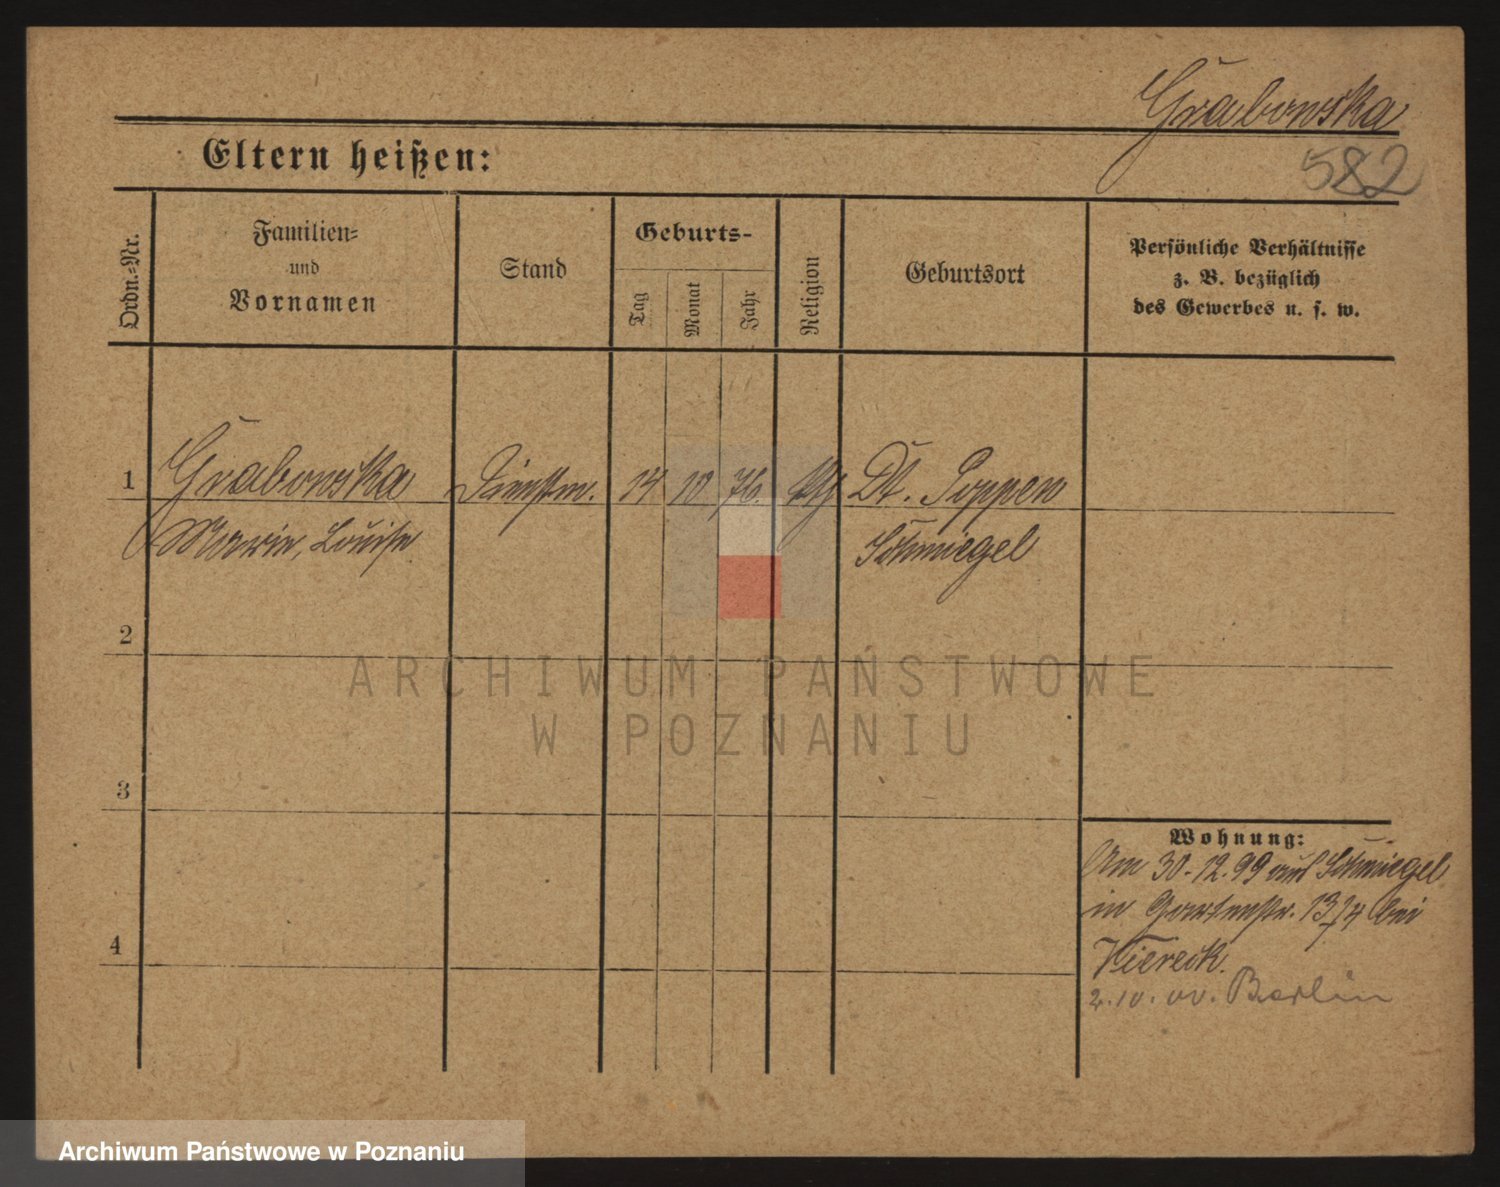 Grabowska
582
Eltern heißen:
Ordn.-Nr.
Familien-
und
Vornamen
Stand
Geburts-
Tag
Monat
Jahr
Religion
Geburtsort
Persönliche Verhältnisse
z. B. bezüglich
des Gewerbes u. s. w.
1
Grabowska
Dienstm.
14
10
76.
Dt. Poppen
Marie, Louise
Schmiegel
2
3
4
Wohnung:
Am 30.12.99 aus Schmiegel
in Gartenstr. 13/4 bei
Viereck.
2.10.00. Berlin
ARCHIWUM PAŃSTWOWE
W POZNANIU
Archiwum Państwowe w Poznaniu